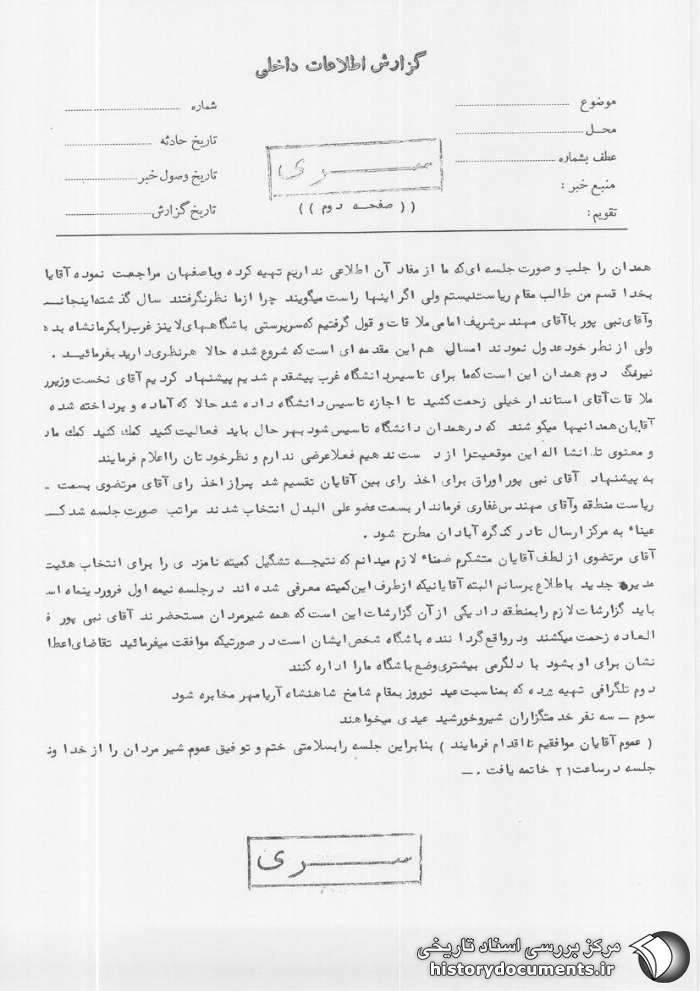 گزارش اطلاعات داخلی
موضوع
محـل
عطف بشماره
منبع خبر :
تقویم:
شماره
تاریخ حادثه
تاریخ وصول خبر
تاریخ گزارش
ســری
(( صفحـه دوم ))
همدان را جلب و صورت جلسه ای که ما از مفاد آن اطلاعی نداریم تهیه کرده وباصفهان مراجعت نموده آقایا
بخدا قسم من طالب مقام ریاست نیستم ولی اگر اینها راست میگویند چرا ازما نظر نگرفتند سال گذشته اینجانـب
وآقای نبی پور با آقای مهندس شریف امامی ملاقات و قول گرفتیم که سرپرستی باشگاههای لاینز غرب را بکرمانشاه بده
ولی از نظر خود عدول نمودند امسال هم این مقدمه ای است که شروع شده حالا هر نظری دارید بفرمائیـد .
نیرنگ دوم همدان این است که ما برای تاسیس دانشگاه غرب پیشقدم شدیم پیشنهاد کردیم آقای نخست وزیر
ملاقات آقای استاندار خیلی زحمت کشید تا اجازه تاسیس دانشگاه داده شد حالا که آماده و پرداخته شده
آقایان همدانیها میکوشند که در همدان دانشگاه تاسیس شود بهر حال باید فعالیت کنید کمک کنید کمک ماد
و معنوی تا انشا اله این موقعیت را از دست ندهیم فعلا عرضی ندارم و نظر خودتان را اعلام فرمایند
به پیشنهاد آقای نبی پور اوراق برای اخذ رای بین آقایان تقسیم شد پس از اخذ رای آقای مرتضوی بسمت ـ
ریاست منطقه وآقای مهندس غفاری فرماندار بسمت عضو علی البدل انتخاب شدند مراتب صورت جلسه شد کـه
عیناً به مرکز ارسال تا در کنگره آبادان مطرح شود .
آقای مرتضوی از لطف آقایان متشکرم ضمناً لازم میدانم که نتیجـه تشکیل کمیته نامزدی را برای انتخاب هئیت
مدیره جدید باطلاع برسانم البته آقایانیکه از طرف این کمیته معرفی شده اند در جلسه نیمه اول فروردینماه اس
باید گزارشات لازم را بمنطقه داد یکی از آن گزارشات این است که همه شیرمردان مستحضرند آقای نبی پور ف
العاده زحمت میکشند ودر واقع گرداننده باشگاه شخص ایشان است در صورتیکه موافقت میفرمائید تقاضای اعطا
نشان برای او بشود با دلگرمی بیشتری وضع باشگاه مارا اداره کنند
دوم تلگرافی تهیه شده که بمناسبت عید نوروز بمقام شامخ شاهنشاه آریامهر مخابره شود
سوم ــ سه نفر خدمتگزاران شیروخورشید عیدی میخواهند
( عموم آقایان موافقیم تا اقدام فرمایند ) بنابراین جلسه را بسلامتی ختم و توفیق عموم شیر مردان را از خداوند
جلسه در ساعت ۲۱ خاتمه یافت . ــ
ســری
مرکز بررسی اسناد تاریخی
historydocuments.ir